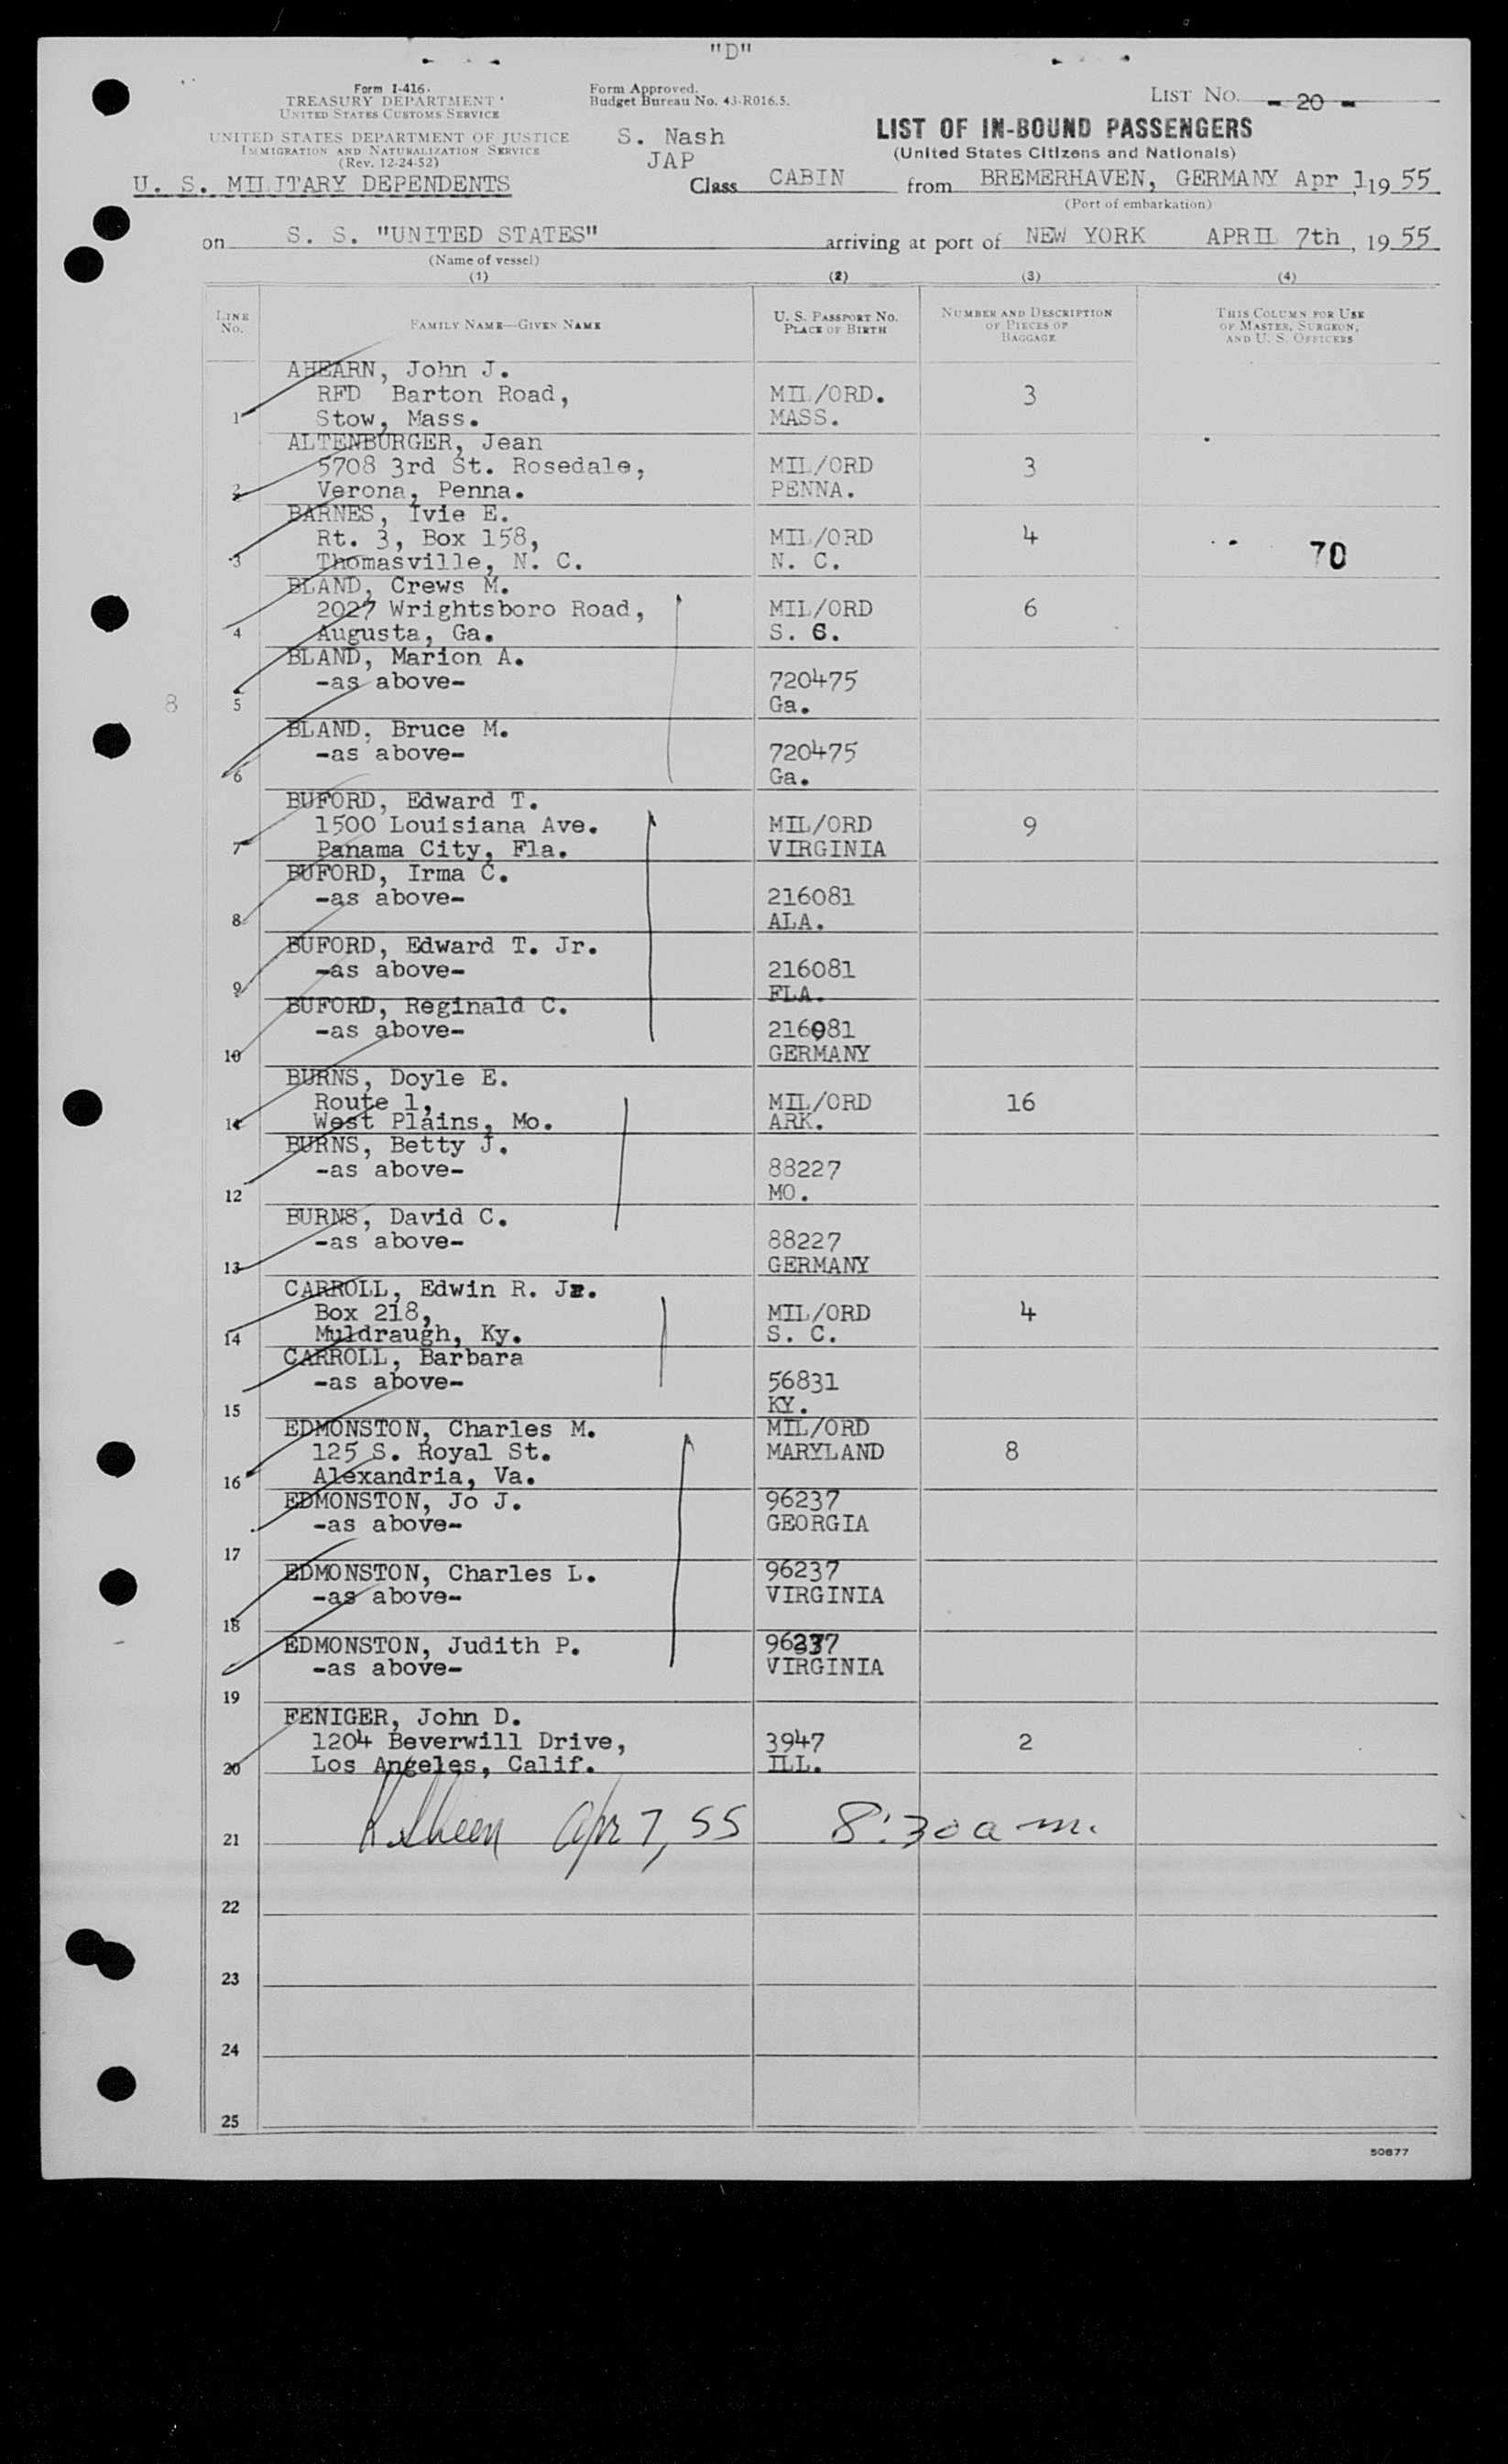 "D"
Form I-416.
TREASURY DEPARTMENT
UNITED STATES CUSTOMS SERVICE
UNITED STATES DEPARTMENT OF JUSTICE
IMMIGRATION AND NATURALIZATION SERVICE
(Rev. 12-24-52)
U. S. MILITARY DEPENDENTS
Form Approved.
Budget Bureau No. 43-R016.5.
S. Nash
JAP
LIST NO. - 20 -
LIST OF IN-BOUND PASSENGERS
(United States Citizens and Nationals)
Class CABIN from BREMERHAVEN, GERMANY Apr 1, 1955
(Port of embarkation)
on S. S. "UNITED STATES" arriving at port of NEW YORK APRIL 7th, 1955
(Name of vessel)
(1) (2) (3) (4)
LINE NO. FAMILY NAME—GIVEN NAME U. S. PASSPORT NO. PLACE OF BIRTH NUMBER AND DESCRIPTION OF PIECES OF BAGGAGE THIS COLUMN FOR USE OF MASTER, SURGEON, AND U. S. OFFICERS
AHEARN, John J.
RFD Barton Road, MIL/ORD. 3
1 Stow, Mass. MASS.
ALTENBURGER, Jean
5708 3rd St. Rosedale, MIL/ORD 3
2 Verona, Penna. PENNA.
BARNES, Ivie E.
Rt. 3, Box 158, MIL/ORD 4
3 Thomasville, N. C. N. C. 70
BLAND, Crews M.
2027 Wrightsboro Road, MIL/ORD 6
4 Augusta, Ga. S. C.
BLAND, Marion A.
-as above- 720475
8 5 Ga.
BLAND, Bruce M.
-as above- 720475
6 Ga.
BUFORD, Edward T.
1500 Louisiana Ave. MIL/ORD 9
7 Panama City, Fla. VIRGINIA
BUFORD, Irma C.
-as above- 216081
8 ALA.
BUFORD, Edward T. Jr.
-as above- 216081
9 FLA.
BUFORD, Reginald C.
-as above- 216081
10 GERMANY
BURNS, Doyle E.
Route 1, MIL/ORD 16
11 West Plains, Mo. ARK.
BURNS, Betty J.
-as above- 88227
12 MO.
BURNS, David C.
-as above- 88227
13 GERMANY
CARROLL, Edwin R. Jr.
Box 218, MIL/ORD 4
14 Muldraugh, Ky. S. C.
CARROLL, Barbara
-as above- 56831
15 KY.
EDMONSTON, Charles M. MIL/ORD
125 S. Royal St. MARYLAND 8
16 Alexandria, Va.
EDMONSTON, Jo J. 96237
-as above- GEORGIA
17
EDMONSTON, Charles L. 96237
-as above- VIRGINIA
18
EDMONSTON, Judith P. 96237
-as above- VIRGINIA
19
FENIGER, John D.
1204 Beverwill Drive, 3947 2
20 Los Angeles, Calif. ILL.
21 Apr 7, 55 8:30 a m.
22
23
24
25
50877